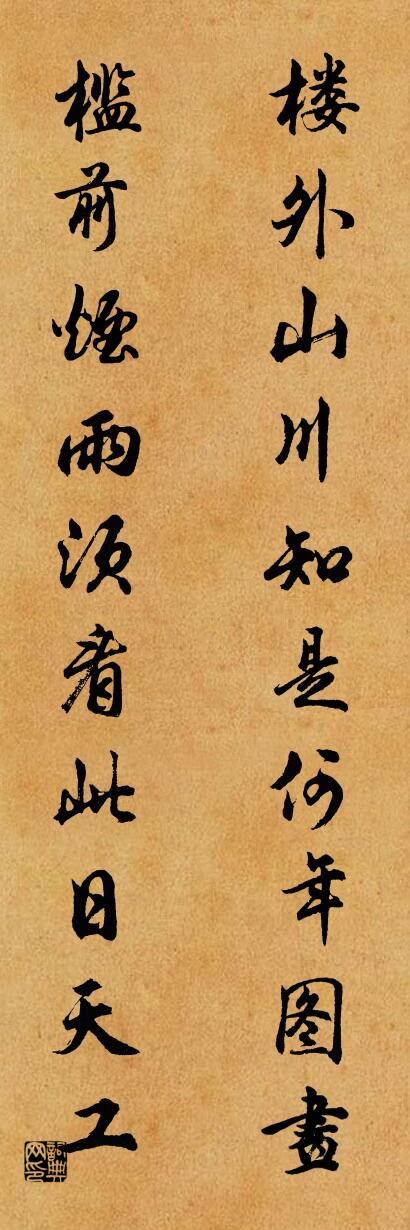 楼外山川知是何年图畫
槛前煙雨须看此日天工